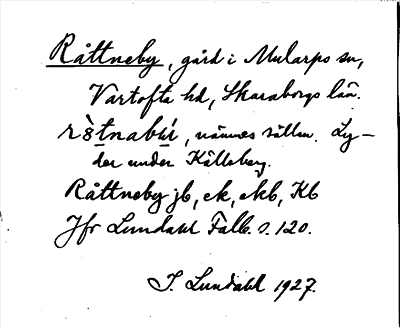 Råttneby, gård i Mularps sn,
Vartofta hd, Skaraborgs län.
rò̀tnabý, nämnes sällan. Ly-
der under Källeberg.
Råttneby jb, ek, ekb, Kb
Jfr Lundahl Falb. s. 120.
I. Lundahl 1927.